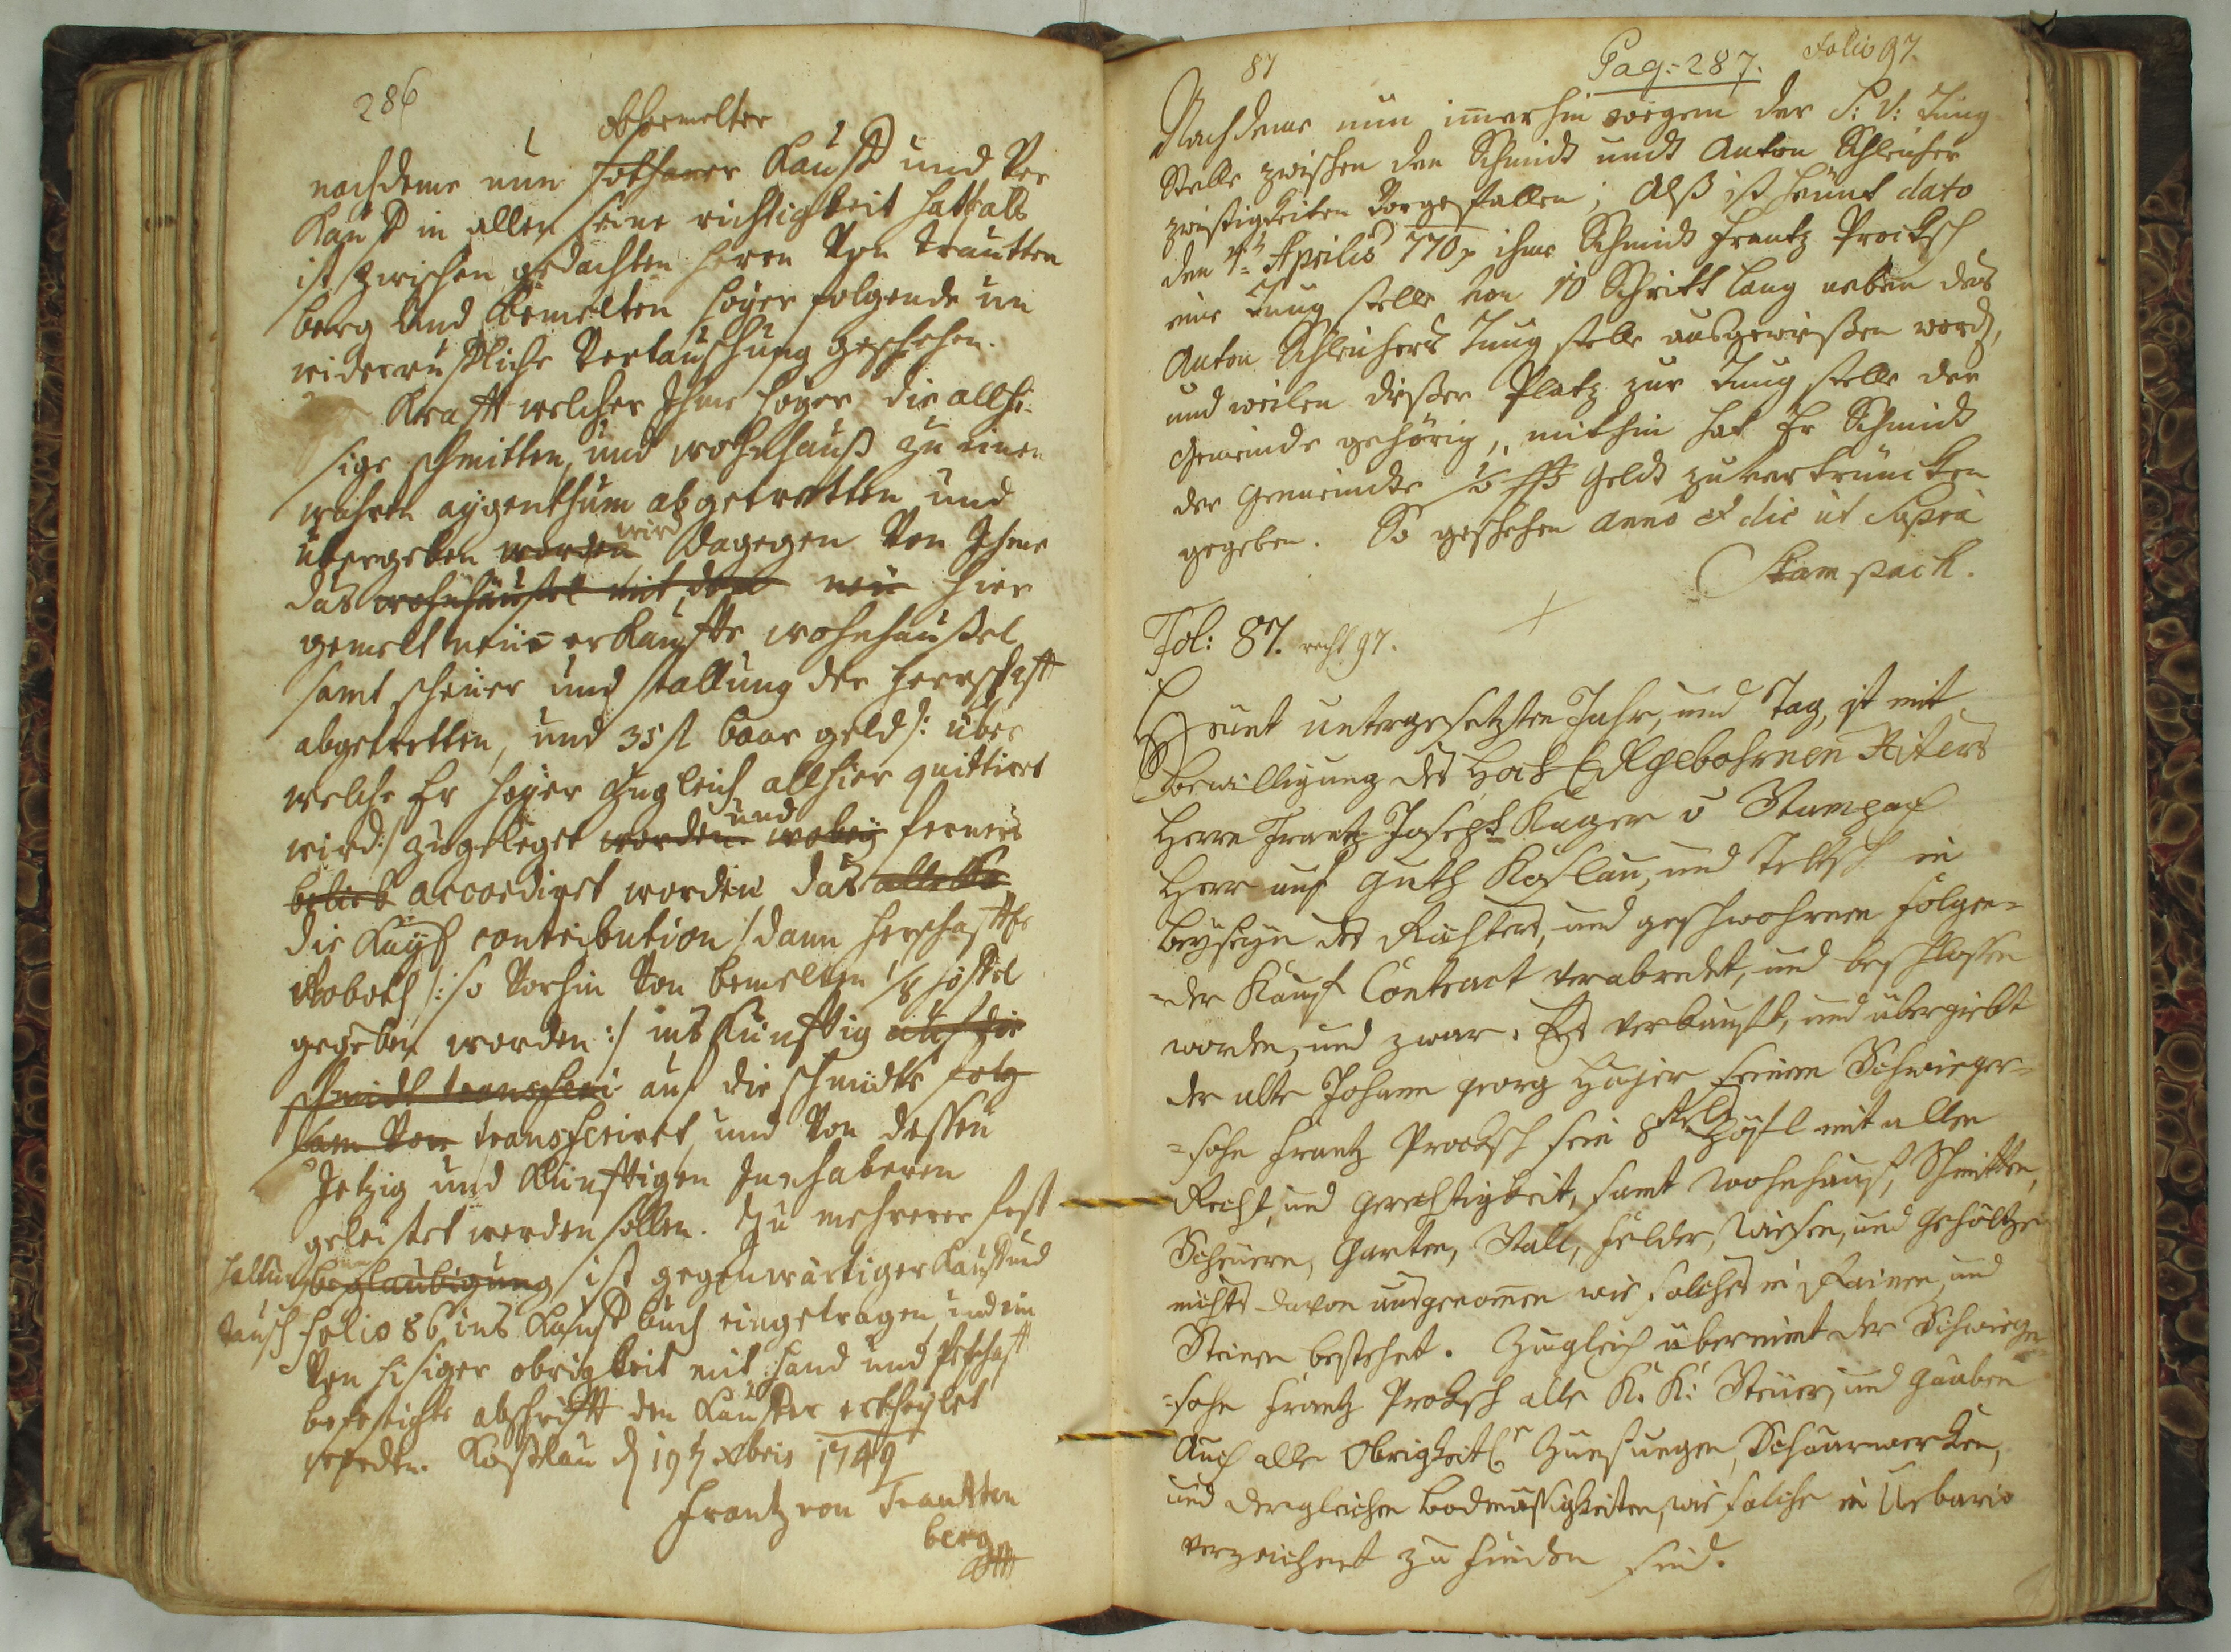 286
obbemelter
nachdeme nun sothaner Kauff und Ver
Kauff in allen seine richtigkeit hatt als
ist zwischen gedachten Herrn Von Trautten
berg und bemelten Hoyer folgende un
widerrufliche Vertauschung geschehen.
Krafft welcher Ihme Hoyer die allhi-
sige schmitten, und wohnhauß zu einen
wahren aygenthum abgetretten und
übergeben worden wird dagegen Von Ihme
das wohnhäußel mit dem neu hier
gemelt neüe erkauffte wohnhaußel
samt scheuer und stallung der herrschafft
abgetretten, und 35 fl baar geld /: über
welche Er Hoyer zugleich allhier quittiret
wird :/ zugeleget worden und wobey ferners
beliebt accordiret worden das alle
die Kays contribution / dann herschafftl
Roboth /: so Vorhin Von bemelten 1/8 höffel
gegeben worden :/ ins Künfftig auf die
schmidt transferi auf die schmidte folg
sam Von transferiret, und Von dessen
Jetzig und Künfftigen Innhaberen
geleistet werden sollen. Zu mehrerer fest
haltung beglaubigung ist gegenwärtiger Kauff und
tausch folio 86 ins Kauff buch eingetragen und ein
Von hisiger obrigkeit mit Hand und Petschafft
befestigte abschrifft den Käuffer ertheylet
worden. Koßlau d 19t xbris 1749
Frantz von Trautten
berg
87 Pag:-287. Folio 97.
Nachdeme nun imerhin wegen der S: V: Tung-
stelle zwischen den Schmidt undt Anton Schleicher
zwistigkeiten Vorgefallen; Alß ist heunt dato
den 4t Aprilis 770 ihme Schmidt Frantz Procksch
eine Tung stelle von 10 Schritt lang neben des
Anton Schleichers Tung stelle ausgewießen word,
und weilen dießer Platz zur Tung stelle der
Gemeinde gehörig, mithin hat Er Schmidt
der Gemeinde Geldt zu vertrüncken
gegeben. So geschehen Anno et die ut Supra
Stampach.
Fol: 87. recht 97.
Heunt untergesetzten Jahr, und Tag, ist mit
Bewilligung des Hoch Edlgebohrnen Riters
Herrn Frantz Joseph Kager v Stampach
Herr auf Guth Koslau, und Teltsch in
beyseyn des Richters, und geschwohrnen folgen-
-der Kauf Contract verabredet, und beschlossen
worden, und zwar: Es verkauft, und übergiebt
der alte Johann Georg Hoyer seinem Schwieger-
-sohn Frantz Procksch sein 8tel Höfl mit allen
Recht, und Gerechtigkeit, samt Wohnhauß, Schmitten,
Scheuern, Garten, Stall, Felder, Wiesen, und Gehöltze
nichts davon ausgenommen wie solches in Rainen, und
Steinen bestehet. Zugleich übernimt der Schwieger-
-sohn Frantz Proksch alle K: K: Steüer, und Gaaben
Auch alle Obrigkeitl Zünsungen, Schaarwercken,
und dergleichen bodmässigkeiten, wie solche in Urbario
verzeichnet zu finden sind.